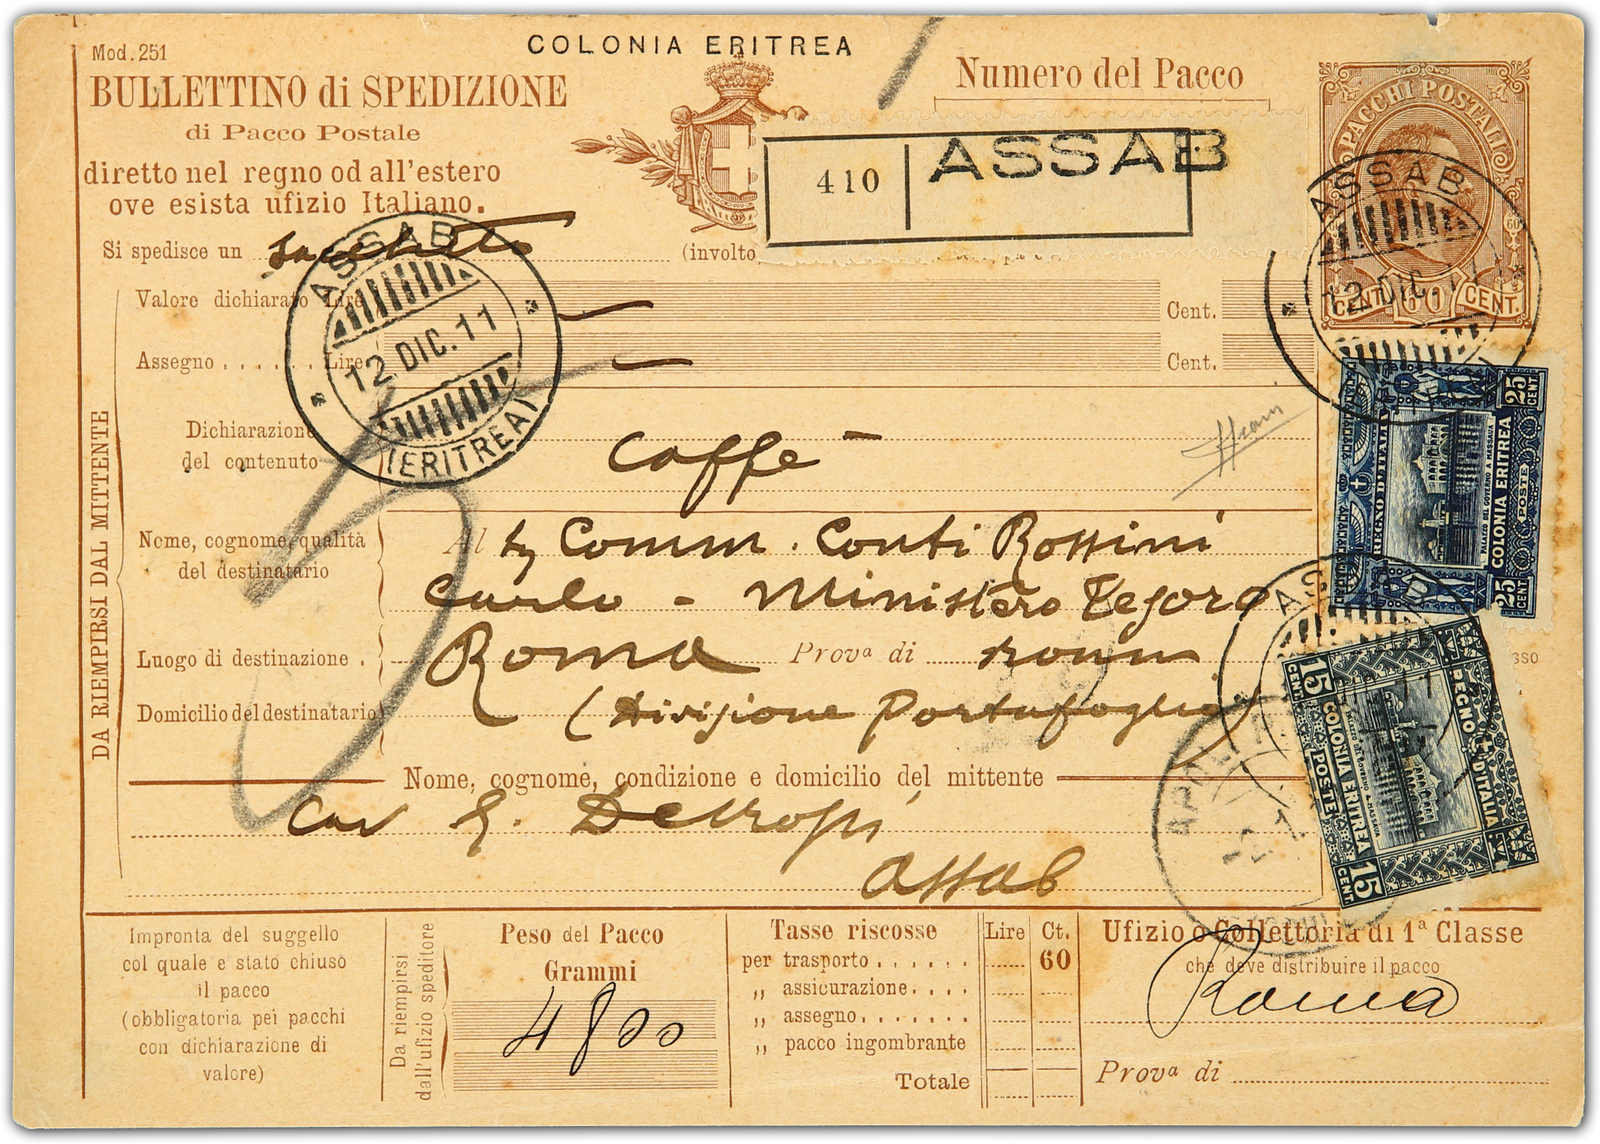 COLONIA ERITREA
Mod. 251
BULLETTINO di SPEDIZIONE
di Pacco Postale
diretto nel regno od all'estero
ove esista ufizio Italiano.
Numero del Pacco
410 ASSAB
PACCHI POSTALI
CENT. 60 CENT.
Si spedisce un sacchetto (involto
Valore dichiarato Lire — Cent.
Assegno . . . . . . Lire — Cent.
ASSAB
12. DIC. 11
(ERITREA)
ASSAB
12. DIC. 11
DA RIEMPIRSI DAL MITTENTE
Dichiarazione
del contenuto
Caffè
Nome, cognome, qualità
del destinatario
Al Comm. Conti Rossini
Carlo - Ministero Tesoro
Luogo di destinazione . Roma Provª di Roma
Domicilio del destinatario (Divisione Portafoglio)
Nome, cognome, condizione e domicilio del mittente
Cav G. Detrossi
Assab
25 CENT 25 CENT
REGNO D'ITALIA
PALAZZO DEL GOVERNO A MASSAUA
COLONIA ERITREA
POSTE
15 CENT 15 CENT
REGNO D'ITALIA
PALAZZO DEL GOVERNO A MASSAUA
COLONIA ERITREA
POSTE
Impronta del suggello
col quale e stato chiuso
il pacco
(obbligatoria pei pacchi
con dichiarazione di
valore)
Da riempirsi
dall'ufizio speditore
Peso del Pacco
Grammi
4800
Tasse riscosse Lire Ct.
per trasporto . . . . . . 60
„ assicurazione. . . .
„ assegno . . . . . . .
„ pacco ingombrante
Totale
Ufizio o Collettoria di 1ª Classe
che deve distribuire il pacco
Roma
Provª di